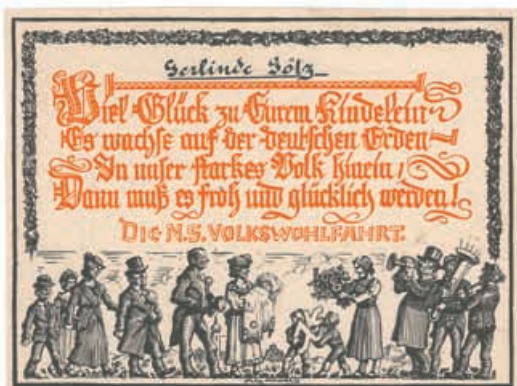 Gerlinde Gölz
Viel Glück zu Eurem Kindelein
Es wachse auf der deutschen Erden
In unser starkes Volk hinein,
Dann muß es froh und glücklich werden!
DIE N.S. VOLKSWOHLFAHRT.